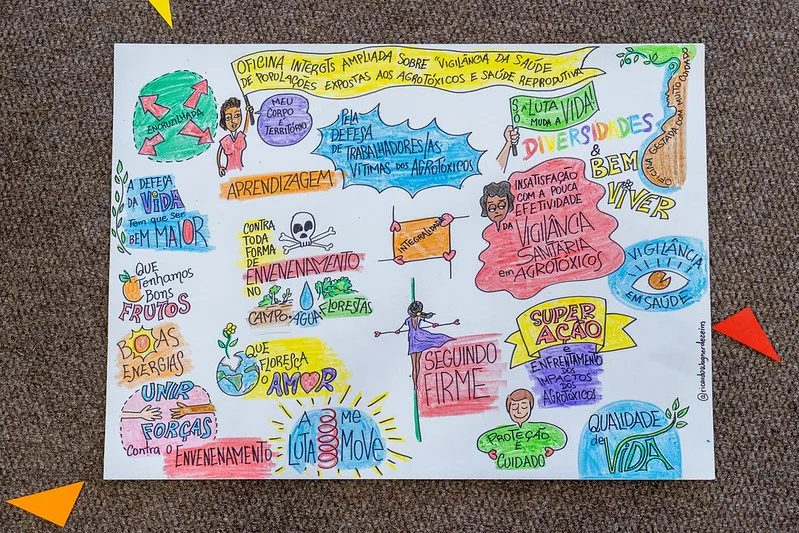 OFICINA INTERGTS AMPLIADA SOBRE "VIGILÂNCIA DA SAÚDE
DE POPULAÇÕES EXPOSTAS AOS AGROTÓXICOS E SAÚDE REPRODUTIVA"
ENCRUZILHADA
MEU
CORPO
É
TERRITÓRIO
PELA
DEFESA
DE TRABALHADORES/AS
VÍTIMAS DOS AGROTÓXICOS
SÓ
A LUTA
MUDA A VIDA!
DIVERSIDADES
&
BEM
VIVER
OFICINA GESTADA COM MUITO CUIDADO
APRENDIZAGEM
A DEFESA
DA VIDA
Tem que ser
BEM MAIOR
CONTRA
TODA
FORMA
DE
ENVENENAMENTO
NO
CAMPO
ÁGUA
FLORESTAS
INTEGRALIDADE
INSATISFAÇÃO
COM A POUCA
EFETIVIDADE
DA VIGILÂNCIA
SANITÁRIA
em AGROTÓXICOS
VIGILÂNCIA
EM SAÚDE
QUE
Tenhamos
Bons
FRUTOS
BOAS
ENERGIAS
QUE
FLORESÇA
O AMOR
SEGUINDO
FIRME
SUPER
AÇÃO
E
ENFRENTAMENTO
DOS
IMPACTOS
DOS
AGROTÓXICOS
UNIR
FORÇAS
Contra o ENVENENAMENTO
A
LUTA
ME
MOVE
PROTEÇÃO
E
CUIDADO
QUALIDADE
de
VIDA
@ricardowagnerdezeim